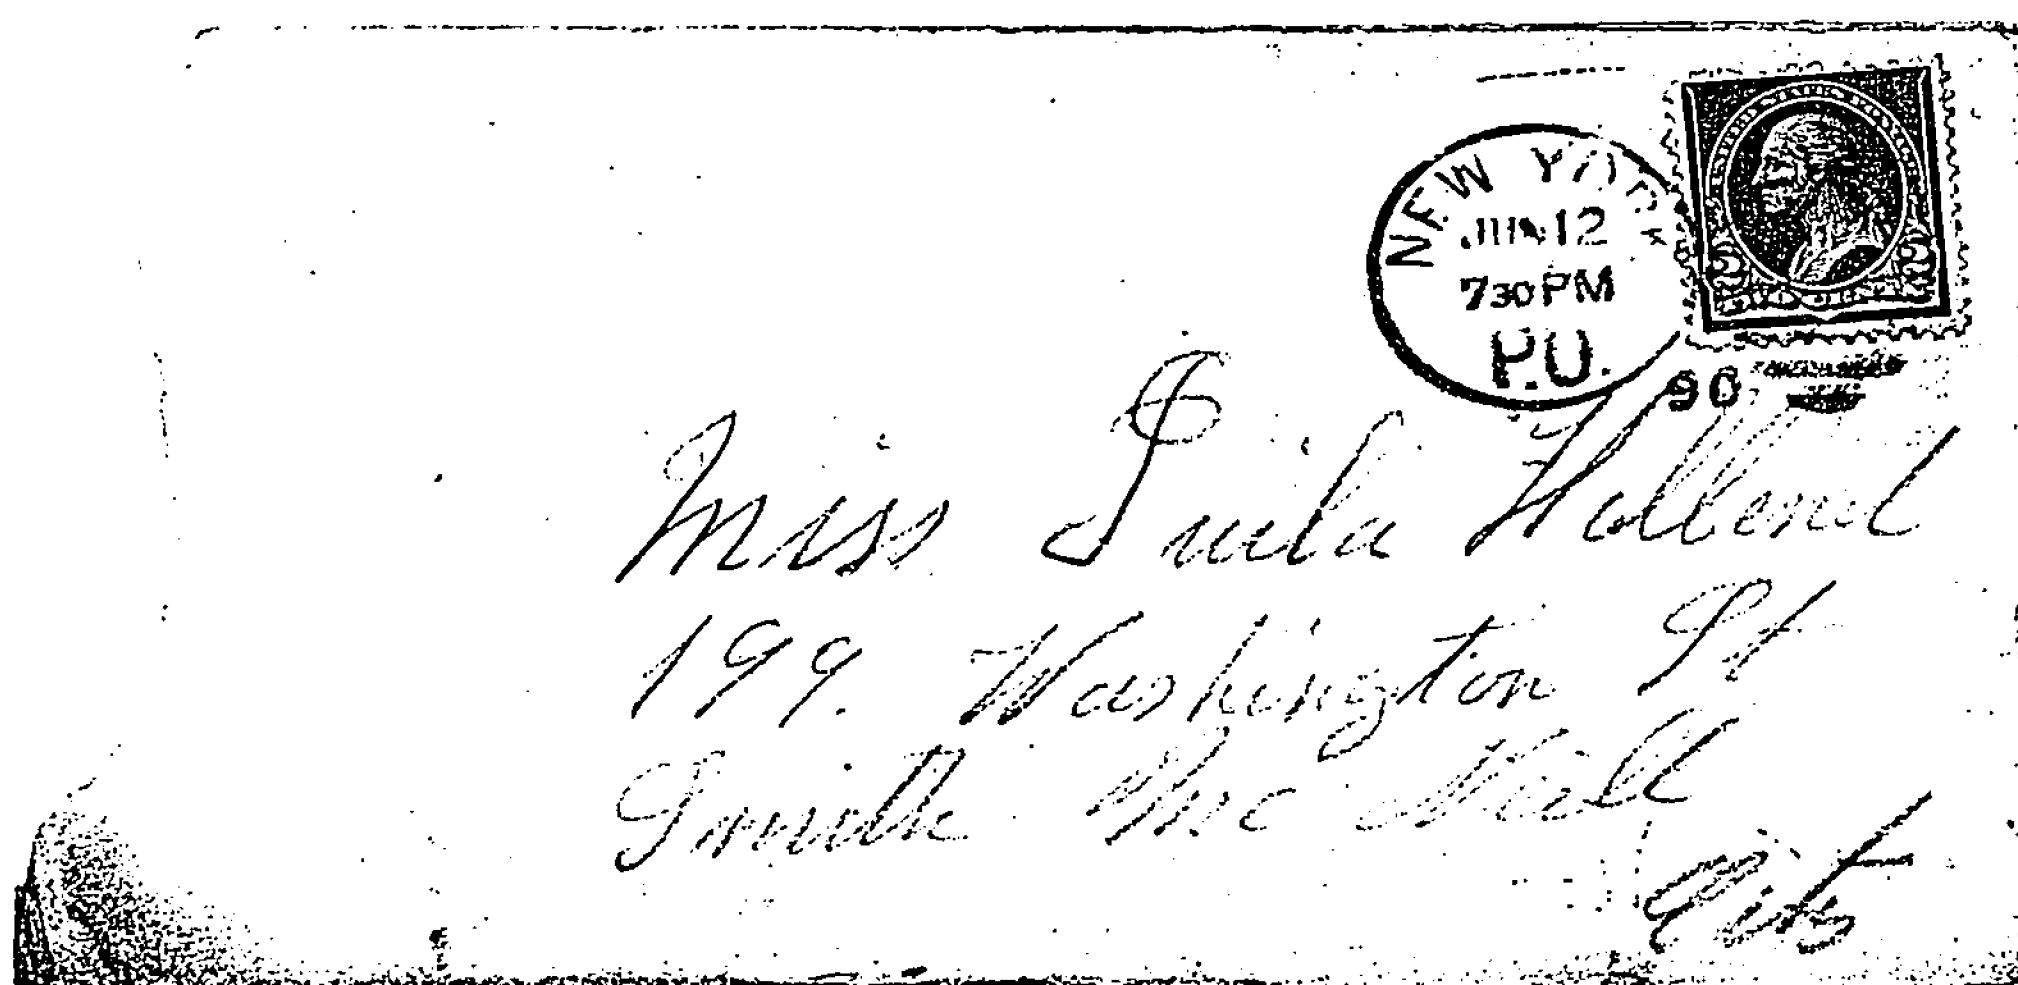 NEW YORK
JUN 12
730 PM
P.O.
90
Miss Luila Holland
199. Washington St
Smith Mc Niell
City